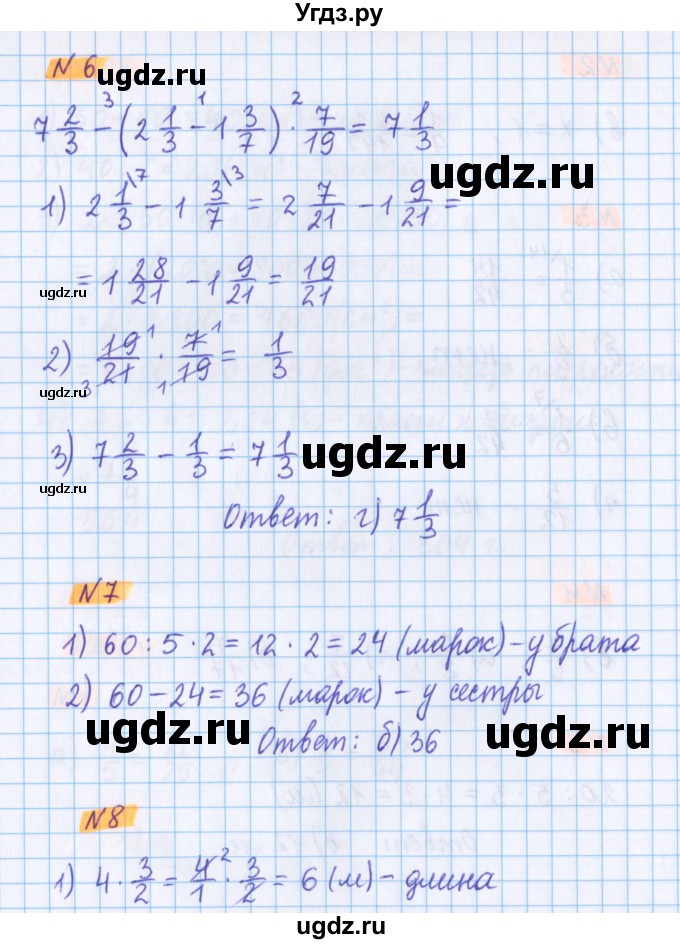 Угдз.ру
№ 6
ugdz.ru
7 2/3 -³ (2 1/3 -¹ 1 3/7) ·² 7/19 = 7 1/3
1) 2 1/3\7 - 1 3/7\3 = 2 7/21 - 1 9/21 =
ugdz.ru
ugdz.ru
= 1 28/21 - 1 9/21 = 19/21
2) 19/21 · 7/19 = 1/3
ugdz.ru
3) 7 2/3 - 1/3 = 7 1/3
ugdz.ru
ugdz.ru
Ответ: г) 7 1/3
№ 7
1) 60 : 5 · 2 = 12 · 2 = 24 (марок) - у брата
2) 60 - 24 = 36 (марок) - у сестры
ugdz.ru
ugdz.ru
Ответ: б) 36
№ 8
1) 4 · 3/2 = 4/1 · 3/2 = 6 (м) - длина
ugdz.ru